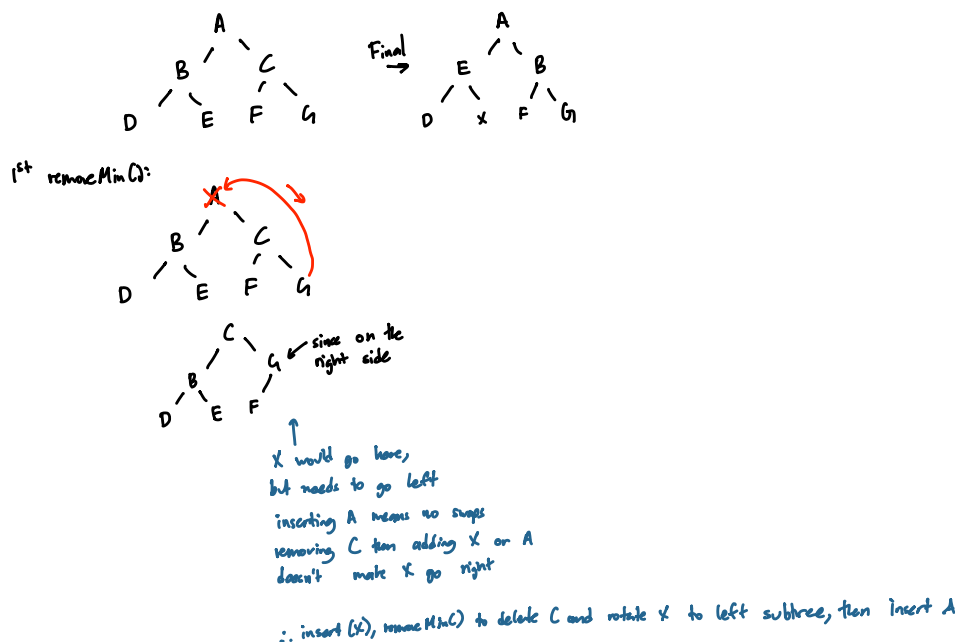 A
B C
D E F G
Final
A
E B
D x F G
1st removeMin():
A
B C
D E F G
C
B G
D E F
since on the
right side
X would go here,
but needs to go left
inserting A means no swaps
removing C then adding X or A
doesn't make X go right
∴ insert(X), removeMin() to delete C and rotate X to left subtree, then insert A